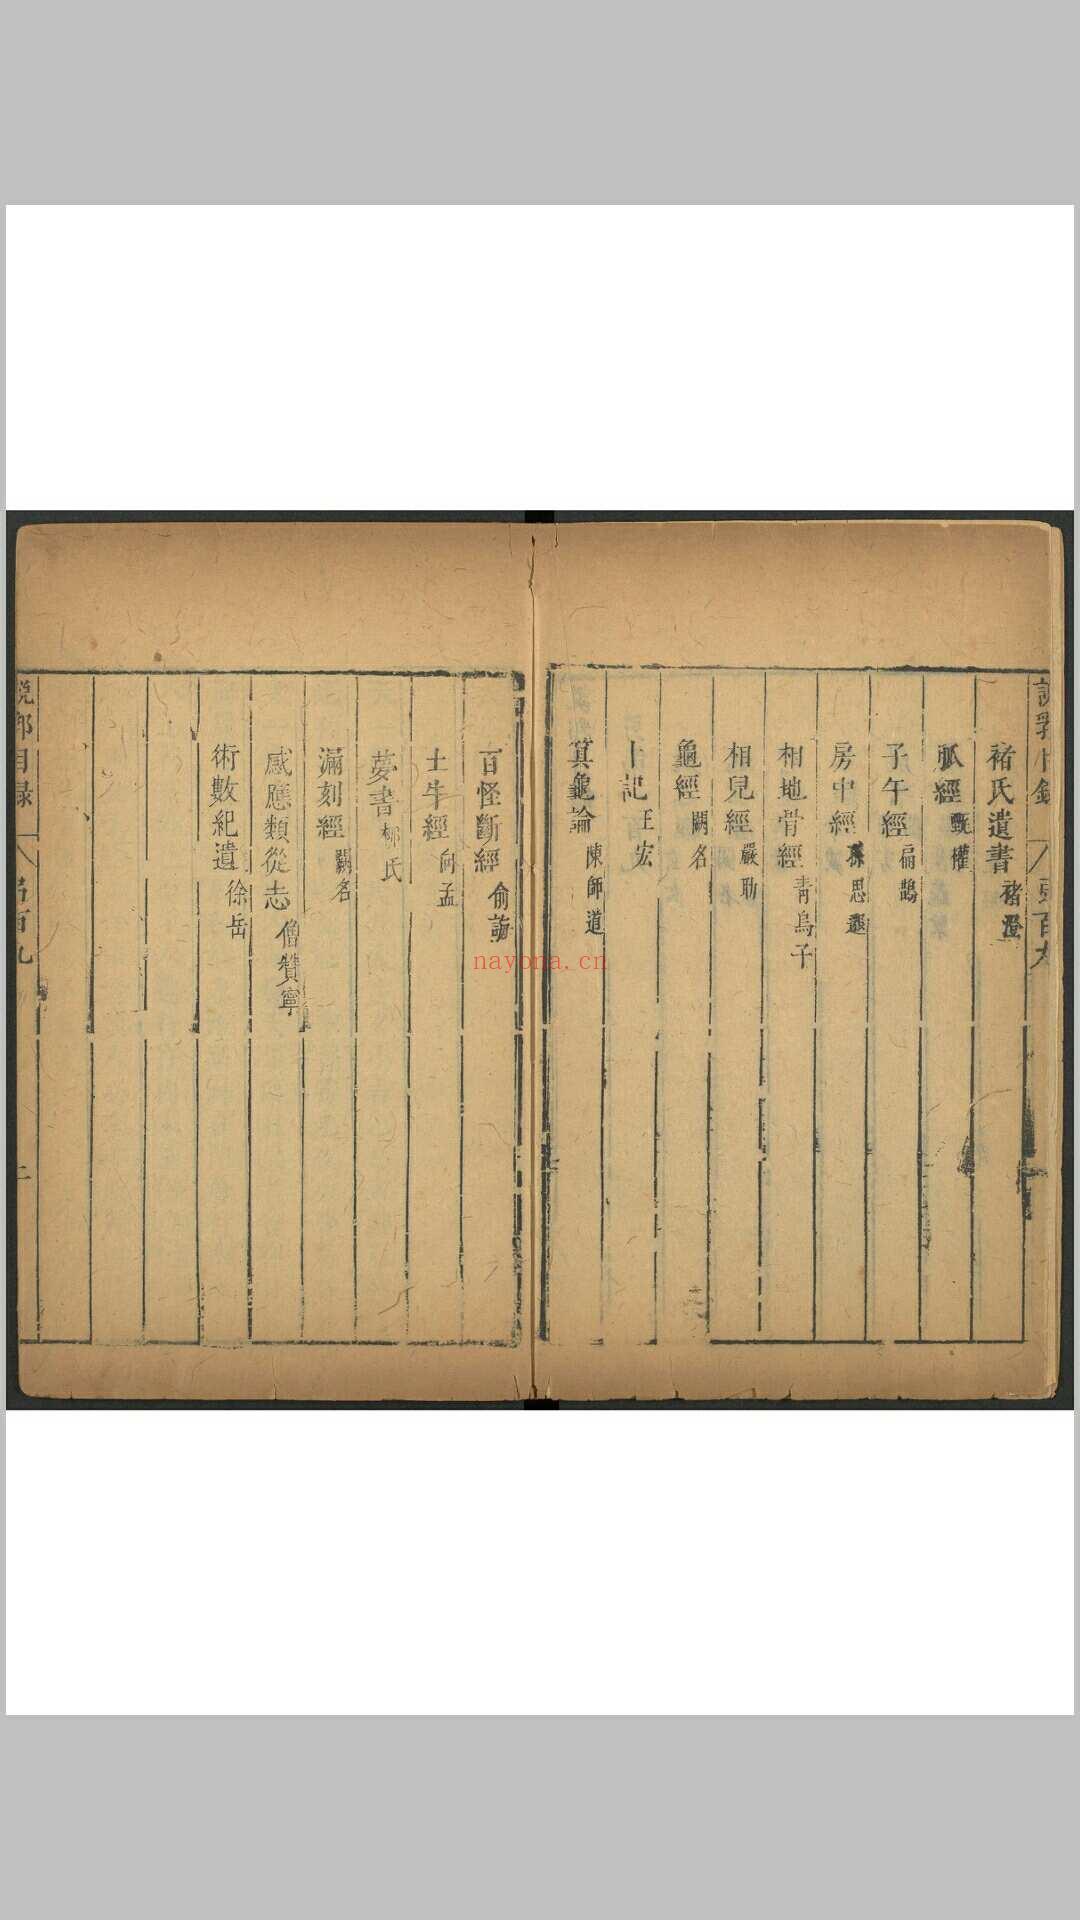 褚氏遺書 褚澄
脈經 甄權
子午經 扁鵲
房中經 孫思邈
相地骨經 青烏子
相兒經 嚴助
龜經 闕名
卜記 王宏
箕龜論 陳師道
百怪斷經 俞誨
土牛經 向孟
夢書 柳氏
漏刻經 闕名
感應類從志 僧贊寧
術數紀遺 徐岳
說郛目錄
nayona.cn